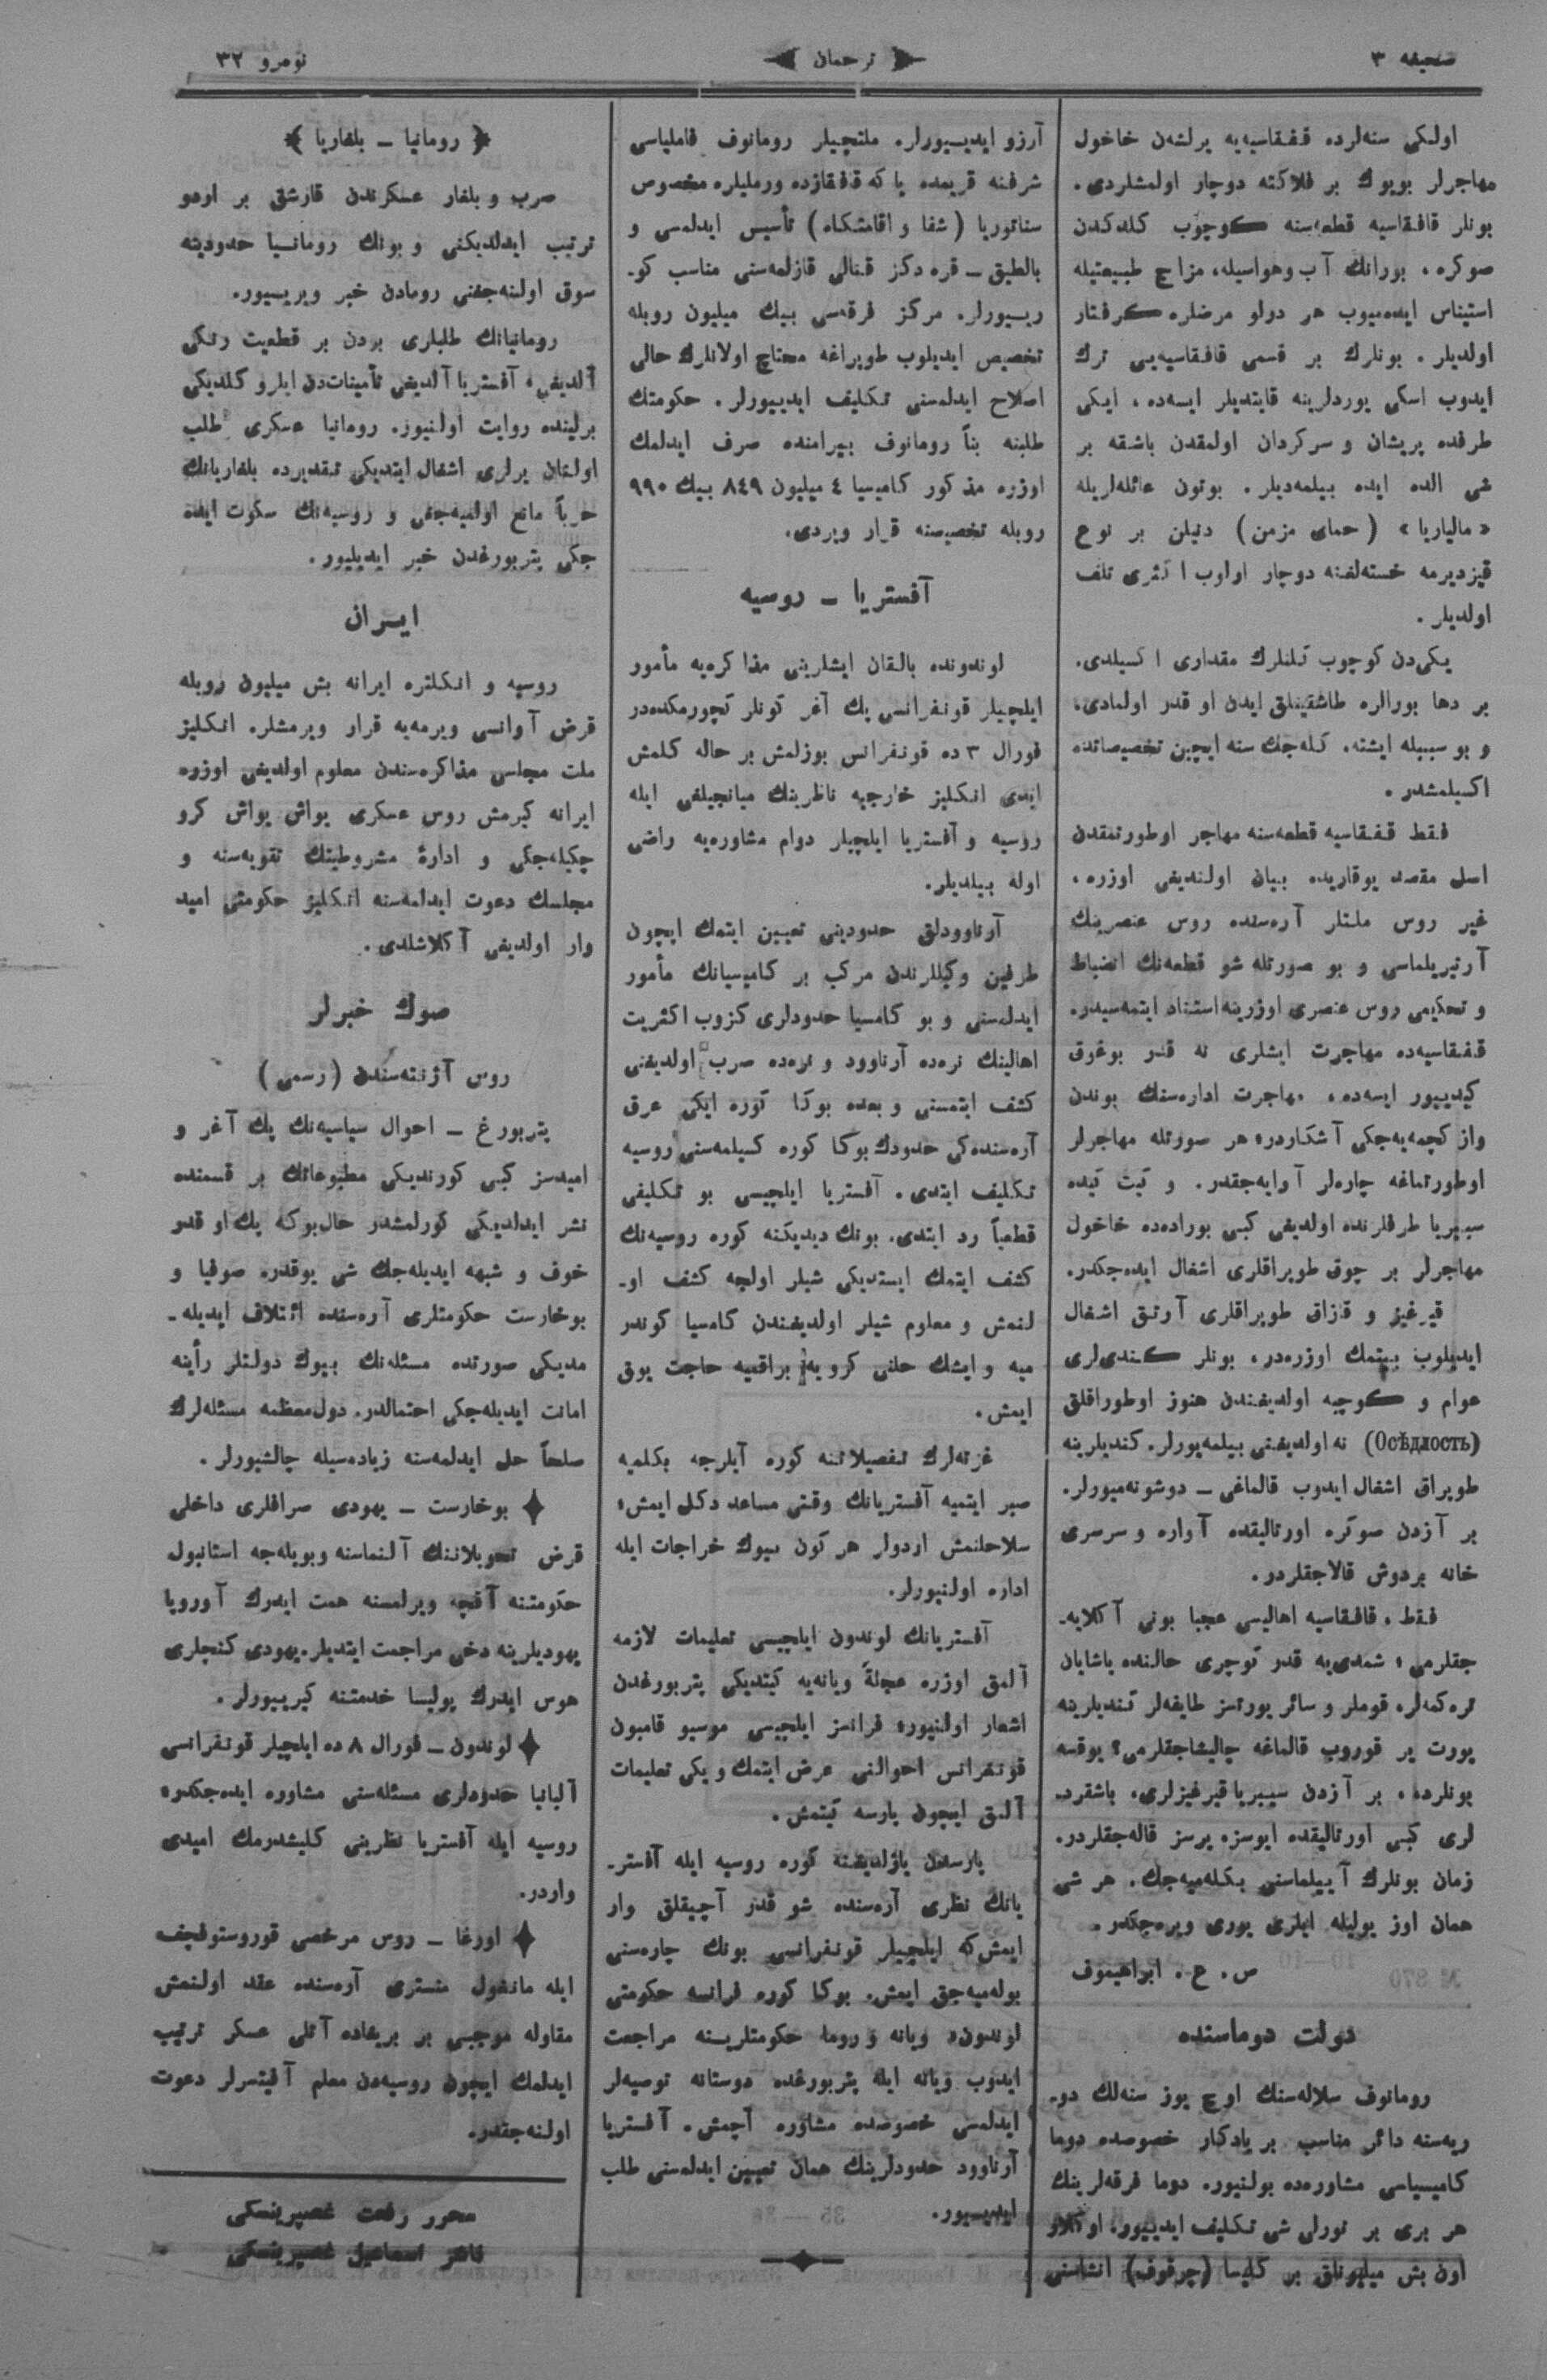 صحیفه ۳
ترجمان
نومرو ۳۲
اولکی سنه‌لرده قفقاسیه‌یه یرلشه‌ن خاخول
مهاجرلر بویوك بر فلاکته دوچار اولمشلردی.
بونلر قافقاسیه قطعه‌سنه کوچوب کلدکدن
صوکره، بورانك آب وهواسیله، مزاج طبیعتیله
استیناس ایده‌میوب هر دولو مرضلره کرفتار
اولدیلر. بونلرك بر قسمی قافقاسیه‌یی ترك
ایدوب اسکی یوردلرینه قایتدیلر ایسه‌ده، ایکی
طرفده پریشان و سرکردان اولمقدن باشقه بر
شی الده ایده بیلمه‌دیلر. بوتون عائله‌لریله
«مالیاریا» (حمای مزمن) دنیلن بر نوع
قیزدیرمه خسته‌لغنه دوچار اولوب اکثری تلف
اولدیلر.
یکی‌دن کوچوب کلنلرك مقداری اکسیلدی.
بر دها بورالره طاشقینلق ایدن او قدر اولمادی،
و بو سببیله ایشته، کله‌جك سنه ایچین تخصیصاتده
اکسیلمشدر.
فقط قفقاسیه قطعه‌سنه مهاجر اوطورتمقدن
اسل مقصد یوقاریده بیان اولندیغی اوزره،
غیر روس ملتلر آره‌سنده روس عنصرینك
آرتیریلماسی و بو صورتله شو قطعه‌نك انضباط
و تحکیمی روس عنصری اوزرینه استناد ایتمه‌سیدر.
قفقاسیه‌ده مهاجرت ایشلری نه قدر بوغوق
کیدییور ایسه‌ده، مهاجرت اداره‌سنك بوندن
واز کچمه‌یه‌جکی آشکاردر، هر صورتله مهاجرلر
اوطورتماغه چاره‌لر آرایه‌جقدر. و کیت کیده
سیبریا طرفلرنده اولدیغی کبی بوراده‌ده خاخول
مهاجرلر بر چوق طوپراقلری اشغال ایده‌جکدر.
قیرغیز و قازاق طوپراقلری آرتق اشغال
ایدیلوب بیتمك اوزره‌در، بونلر کندی‌لری
عوام و کوچبه اولدیغندن هنوز اوطوراقلق
(Осѣдлость) نه اولدیغنی بیلمه‌یورلر. کندیلرینه
طوپراق اشغال ایدوب قالماغی – دوشونه‌میورلر.
بر آزدن صوکره اورتالیقده آواره و سرسری
خانه بردوش قالاجقلردر.
فقط، قافقاسیه اهالیسی عجبا بونی آکلایه‌ـ
جقلرمی، شمدی‌یه قدر کوچری حالنده یاشایان
تره‌کمه‌لر، قوملر و سائر یورتسز طایفه‌لر کندیلرینه
یورت یر قوروب قالماغه چالیشاجقلرمی؟ یوقسه
بونلرده، بر آزدن سیبریا قیرغیزلری، باشقردـ
لری کبی اورتالیقده ایوسزه یرسز قاله‌جقلردر.
زمان بونلرك آییلماسنی بکله‌میه‌جك. هر شی
همان اوز یولیله ایلری یوری ویره‌جکدر.
ص. ع. ابراهیموف
دولت دوماسنده
رومانوف سلاله‌سنك اوچ یوز سنه‌لك دوـ
ریه‌سنه دائر مناسب بر یادکار خصوصده دوما
کامیسیاسی مشاوره‌ده بولنیور. دوما فرقه‌لرینك
هر بری بر تورلی شی تکلیف ایدییور،
اون بش میلیونلق بر کلیسا (چرقوف) انشاسنی
آرزو ایدیسیورلر. ملتچیلر رومانوف فاملیاسی
شرفنه قریمده یا که قافقازده ورملیلره مخصوص
سناتوریا (شفا و اقامتگاه) تأسیس ایدلمسی و
بالطیق – قره دکز قنالی قازلمه‌سنی مناسب کوـ
ریسیورلر. مرکز فرقه‌سی بییك میلیون روبله
تخصیص ایدیلوب طوپراغه محتاج اولانلرك حالی
اصلاح ایدلمسنی تکلیف ایدییورلر. حکومتك
طلبنه بناً رومانوف بیرامنده صرف ایدلمك
اوزره مذکور کامیسیا ٤ میلیون ٨٤٩ بییك ٩٩٠
روبله تخصیصنه قرار ویردی.
آفستریا – روسیه
لوندونده بالقان ایشلرینی مذاکره‌یه مأمور
ایلچیلر قونفرانسی پك آغر کونلر کچورمکده‌در
فورال ٣ ده قونفرانس بوزلمش بر حاله کلمش
ایدی انکلیز خارجیه ناظرینك میانجیلغی ایله
روسیه و آفستریا ایلچیلر دوام مشاوره‌یه راضی
اوله بیلدیلر.
آرناوودلق حدودینی تعیین ایتمك ایچون
طرفین وکیللرندن مرکب بر کامیسیانك مأمور
ایدلمسنی و بو کامسیا حدودلری کزوب اکثریت
اهالینك نره‌ده آرناوود و نره‌ده صرب اولدیغنی
کشف ایتمسنی و بعده بوکا کوره ایکی عرق
آره‌سنده‌کی حدودك بوکا کوره کسیلمه‌سنی روسیه
تکلیف ایتدی. آفستریا ایلچیسی بو تکلیفی
قطعیاً رد ایتدی. بونك دیدیکنه کوره روسیه‌نك
کشف ایتمك ایستدیکی شیلر اولجه کشف اوـ
لنمش و معلوم شیلر اولدیغندن کامسیا کوندر
میه و ایشك حلنی کرویه براقمیه حاجت یوق
ایمش.
غزته‌لرك تفصیلاتنه کوره آیلرجه بکلمیه
صبر ایتمیه آفستریانك وقتی مساعد دکل ایمش،
سلاحلنمش اردولر هر کون بیوك خراجات ایله
اداره اولنیورلر.
آفستریانك لوندون ایلچیسی تعلیمات لازمه
آلمق اوزره عجلةً ویانه‌یه کیتدیکی پتربورغدن
اشعار اولنیور، فرانسز ایلچیسی موسیو قامبون
قونفرانس احوالنی عرض ایتمك و یکی تعلیمات
آلمق ایچون پارسه کیتمش.
پارسدن یازلدیغنه کوره روسیه ایله آفسترـ
یانك نظری آره‌سنده شو قدر آچیقلق وار
ایمش که ایلچیلر قونفرانسی بونك چاره‌سنی
بوله‌میه‌جق ایمش. بوکا کوره فرانسه حکومتی
لوندون، ویانه و روما حکومتلرینه مراجعت
ایدوب ویانه ایله پتربورغده دوستانه توصیه‌لر
ایدلمسی خصوصده مشاوره آچمش. آفستریا
آرناوود حدودلرینك همان تعیین ایدلمه‌سنی طلب
ایدیسیور.
﴿ رومانیا – بلغاریا ﴾
صرب و بلغار عسکرندن قارشق بر اردو
ترتیب ایدلدیکنی و بونك رومانیا حدودینه
سوق اولنه‌جغنی رومادن خبر ویریسیور.
رومانیانك طلبلری بردن بر قطعیت رنکی
آلدیغی، آفستریا آلدیغی تأمینات‌دن ایلرو کلدیکی
برلینده روایت اولنیور. رومانیا عسکری طلب
اولنان یرلری اشغال ایتدیکی تقدیرده بلغاریانك
حرباً مانع اولمیه‌جغی و روسیه‌نك سکوت ایده
جکی پتربورغدن خبر ایدیلیور.
ایران
روسیه و انکلتره ایرانه بش میلیون روبله
قرض آوانسی ویرمه‌یه قرار ویرمشلر. انکلیز
ملت مجلس مذاکره‌سندن معلوم اولدیغی اوزره
ایرانه کیرمش روس عسکری یواش یواش کرو
چکیله‌جکی و ادارۀ مشروطیتك تقویه‌سنه و
مجلسك دعوت ایدلمه‌سنه انکلیز حکومتی امید
وار اولدیغی آکلاشلدی.
صوك خبرلر
روس آژنته‌سندن (رسمی)
پتربورغ – احوال سیاسیه‌نك پك آغر و
امیدسز کبی کورندیکی مطبوعاتك بر قسمنده
نشر ایدلدیکی کورلمشدر حال‌بوکه پك او قدر
خوف و شبهه ایدیله‌جك شی یوقدر. صوفیا و
بوخارست حکومتلری آره‌سنده ائتلاف ایدیله‌ـ
مدیکی صورتده مسئله‌نك بیوك دولتلر رأینه
امانت ایدیله‌جکی احتمالدر. دول معظمه مسئله‌لرك
صلحاً حل ایدلمه‌سنه زیاده‌سیله چالشیورلر.
بوخارست – یهودی صرافلری داخلی
قرض تحویلاتنك آلنماسنه وبویله‌جه استانبول
حکومتنه آقچه ویرلمسنه همت ایدرك آوروپا
یهودیلرینه دخی مراجعت ایتدیلر. یهودی کنجلری
هوس ایدرك پولیسا خدمتنه کیرییورلر.
لوندون – فورال ٨ ده ایلچیلر قونفرانسی
آلبانیا حدودلری مسئله‌سنی مشاوره ایده‌جکدر،
روسیه ایله آفستریا نظرینی کلیشدرمك امیدی
واردر.
اورغا – روس مرخصی قوروستوفچف
ایله مانغول منستری آره‌سنده عقد اولنمش
مقاوله موجبی بر بریغاده آتلی عسکر ترتیب
ایدلمك ایچون روسیه‌دن معلم آفیتسرلر دعوت
اولنه‌جقدر.
محرر رفعت غصپرینسکی
ناشر اسماعیل غصپرینسکی